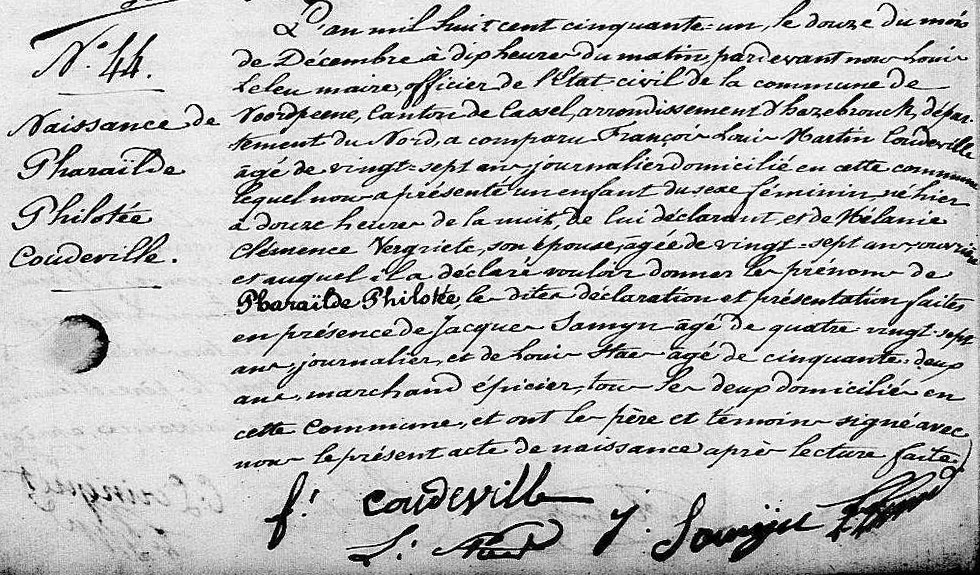 N.° 44.
Naissance de
Pharaïlde
Philotée
Coudeville.
L'an mil huit cent cinquante-un, le douze du mois
de Décembre à dix heures du matin, pardevant nous Louis
Leleu maire, officier de l'Etat-civil de la commune de
Noordpeene, Canton de Cassel, arrondissement d'hazebrouck, dépar-
tement du Nord, a comparu François Louis Martin Coudeville
âgé de vingt-sept ans, journalier domicilié en cette commune
lequel nous a présenté un enfant du sexe féminin, né hier
à douze heures de la nuit, de lui déclarant, et de Mélanie
Clémence Vergriete, son épouse, âgée de vingt-sept ans, ouvrière
et auquel il a déclaré vouloir donner les prénoms de
Pharaïlde Philotée, les dites déclaration et présentation faites
en présence de Jacques Samyn âgé de quatre-vingt-sept
ans, journalier, et de Louis Stae âgé de cinquante-deux
ans, marchand épicier, tous les deux domiciliés en
cette Commune, et ont les père et témoins signé avec
nous le présent acte de naissance après lecture faite.
f. Coudeville
L. J. Samyn